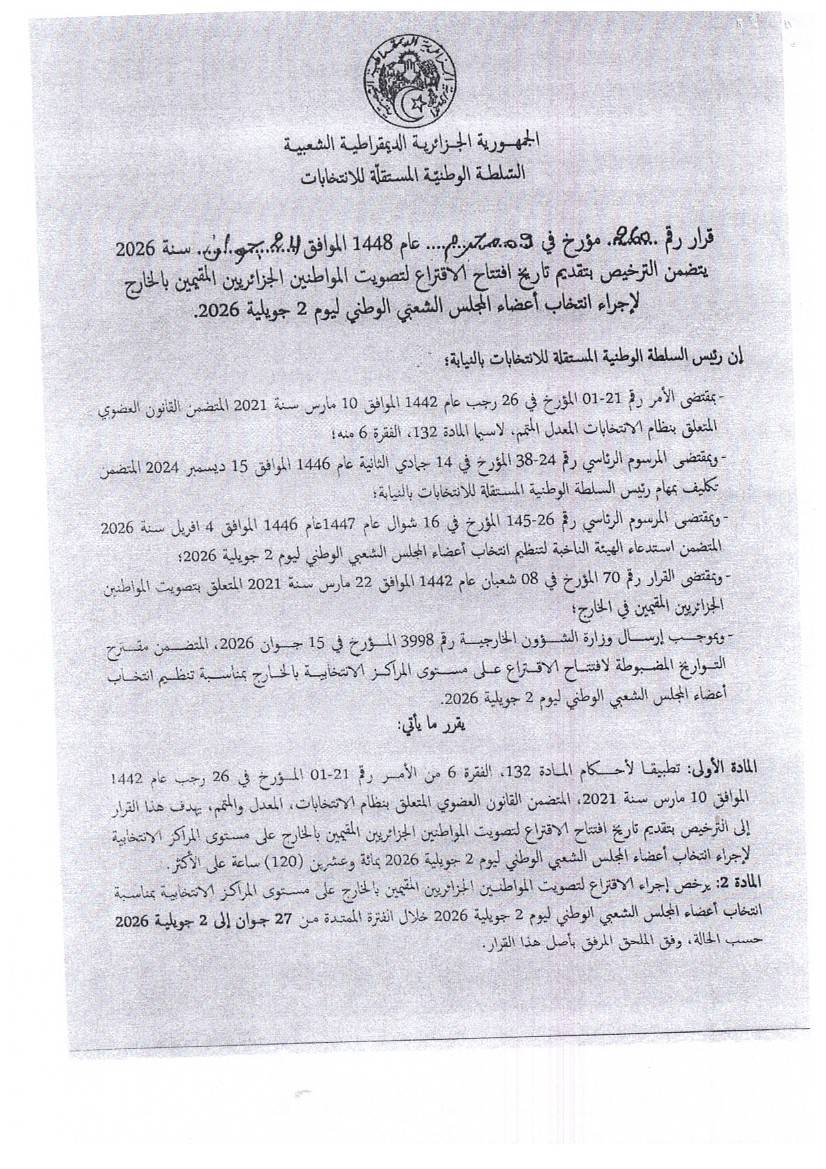 الجمهورية الجزائرية الديمقراطية الشعبية
السّلطة الوطنيّة المستقلّة للانتخابات
قرار رقم ..260.. مؤرخ في 09 محرم.... عام 1448 الموافق 24 جوان.. سنة 2026
يتضمن الترخيص بتقديم تاريخ افتتاح الاقتراع لتصويت المواطنين الجزائريين المقيمين بالخارج
لإجراء انتخاب أعضاء المجلس الشعبي الوطني ليوم 2 جويلية 2026.
إن رئيس السلطة الوطنية المستقلة للانتخابات بالنيابة؛
-بمقتضى الأمر رقم 21-01 المؤرخ في 26 رجب عام 1442 الموافق 10 مارس سنة 2021 المتضمن القانون العضوي
المتعلق بنظام الانتخابات المعدل المتمم، لاسيما المادة 132، الفقرة 6 منه؛
-وبمقتضى المرسوم الرئاسي رقم 24-38 المؤرخ في 14 جمادي الثانية عام 1446 الموافق 15 ديسمبر 2024 المتضمن
تكليف بمهام رئيس السلطة الوطنية المستقلة للانتخابات بالنيابة؛
-وبمقتضى المرسوم الرئاسي رقم 26-145 المؤرخ في 16 شوال عام 1447عام 1446 الموافق 4 افريل سنة 2026
المتضمن استدعاء الهيئة الناخبة لتنظيم انتخاب أعضاء المجلس الشعبي الوطني ليوم 2 جويلية 2026؛
-وبمقتضى القرار رقم 70 المؤرخ في 08 شعبان عام 1442 الموافق 22 مارس سنة 2021 المتعلق بتصويت المواطنين
الجزائريين المقيمين في الخارج؛
-وبموجب إرسال وزارة الشؤون الخارجية رقم 3998 المؤرخ في 15 جوان 2026، المتضمن مقترح
التواريخ المضبوطة لافتتاح الاقتراع على مستوى المراكز الانتخابية بالخارج بمناسبة تنظيم انتخاب
أعضاء المجلس الشعبي الوطني ليوم 2 جويلية 2026.
يقرر ما يأتي:
المادة الأولى: تطبيقا لأحكام المادة 132، الفقرة 6 من الأمر رقم 21-01 المؤرخ في 26 رجب عام 1442
الموافق 10 مارس سنة 2021، المتضمن القانون العضوي المتعلق بنظام الانتخابات، المعدل والمتمم، يهدف هذا القرار
إلى التّرخيص بتقديم تاريخ افتتاح الاقتراع لتصويت المواطنين الجزائريين المقيمين بالخارج على مستوى المراكز الانتخابية
لإجراء انتخاب أعضاء المجلس الشعبي الوطني ليوم 2 جويلية 2026 بمائة وعشرين (120) ساعة على الأكثر.
المادة 2: يرخص إجراء الاقتراع لتصويت المواطنين الجزائريين المقيمين بالخارج على مستوى المراكز الانتخابية بمناسبة
انتخاب أعضاء المجلس الشعبي الوطني ليوم 2 جويلية 2026 خلال الفترة الممتدة من 27 جوان إلى 2 جويلية 2026
حسب الحالة، وفق الملحق المرفق بأصل هذا القرار.